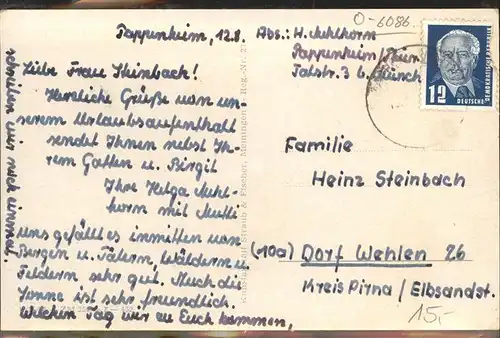 O-6086
Pappenheim, 12.8.
Abs.: H. Mehlhorn
Pappenheim/Thür
Talstr. 3 b. Münch
Liebe Frau Steinbach!
Herzliche Grüße von un-
serem Urlaubsaufenthalt
sendet Ihnen nebst Ih-
rem Gatten u. Birgit
Ihre Helga Mehl-
horn mit Mutti
Uns gefällt es inmitten von
Bergen u. Tälern, Wäldern u.
Feldern sehr gut. Auch die
Sonne ist sehr freundlich.
Welchen Tag wir zu Euch kommen,
schreiben wir noch einmal.
Straub & Fischer, Meiningen
12
DEUTSCHE
DEMOKRATISCHE REPUBLIK
Familie
Heinz Steinbach
(10a) Dorf Wehlen 26
Kreis Pirna / Elbsandst.
15,-